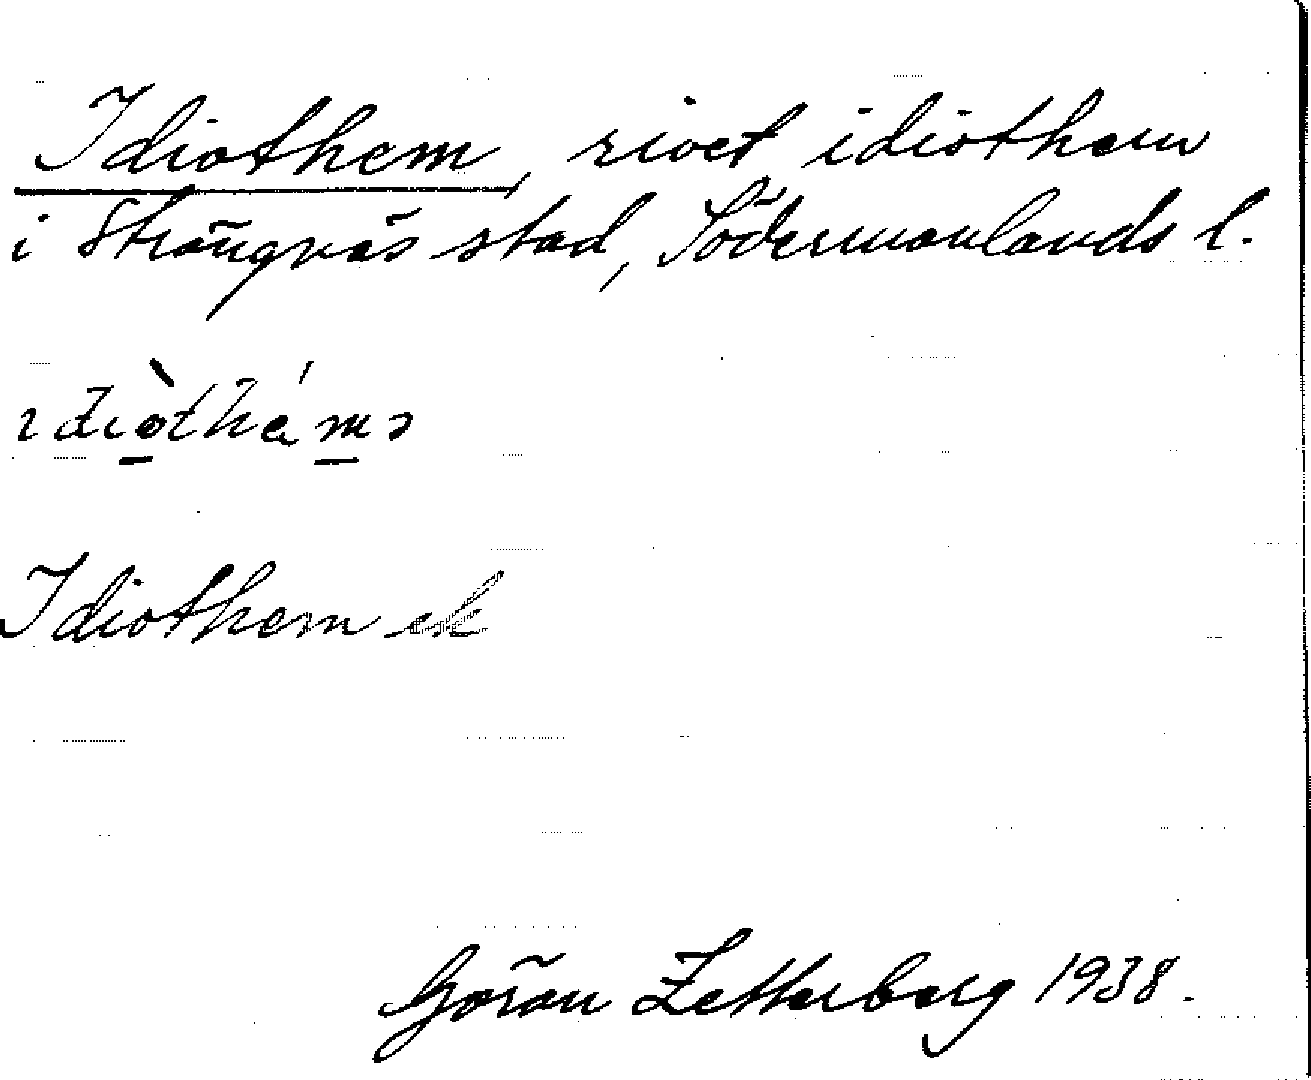 Idiothem, rivet idiothem
i Strängnäs stad, Södermanlands l.
ɪdɪòthé,mə
Idiothem ek
Göran Zetterberg 1938.